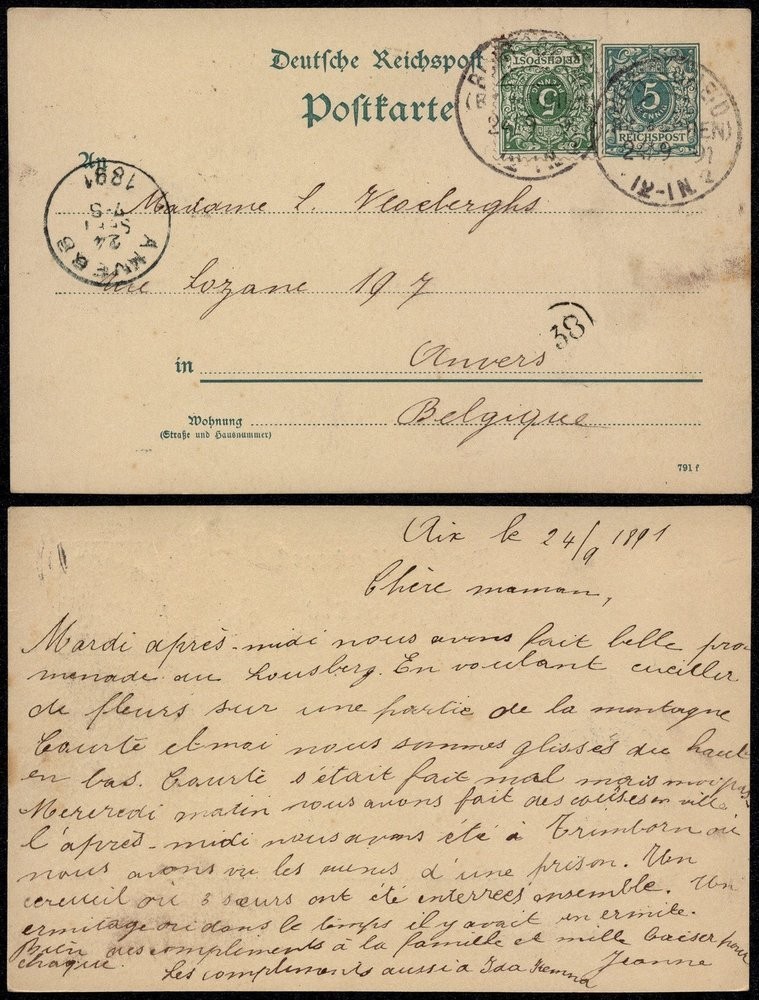 Deutsche Reichspost
Postkarte
REICHSPOST
5
5
PFENNIG
REICHSPOST
24/9 91
12-1N
An
ANVERS
24
SEPT
7-S
1891
Madame L. Vloeberghs
rue Lozane 197
38
in Anvers
Wohnung Belgique
(Straße und Hausnummer)
791 f
Aix le 24/9 1891
Chère maman,
Mardi après-midi nous avons fait belle pro
menade au Lousberg. En voulant cueiller
de fleurs sur une partie de la montagne
et moi nous sommes glissés du haut
en bas. s'était fait mal mais moi pas.
Mercredi matin nous avons fait des courses en ville
l'après-midi nous avons été à Trimborn où
nous avons vu les ruines d'une prison. Un
cercueil où 3 sœurs ont été enterrées ensemble. Un
ermitage où dans le temps il y avait un ermite.
Bien des compliments à la famille et mille baiser pour
chaque. Jeanne
Les compliments aussi a Ida